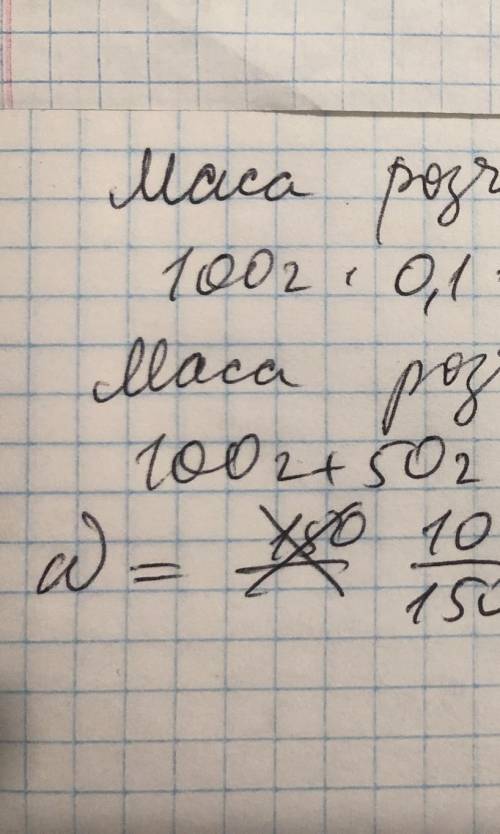 Маса розч
100г · 0,1
Маса розч
100г + 50г
ω = 10
150